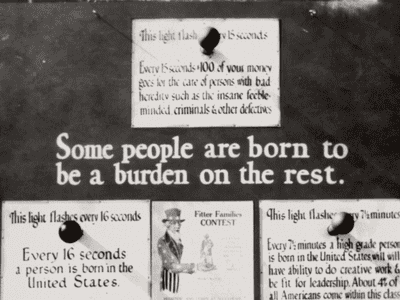 This light flashes every 15 seconds
Every 15 seconds $100 of your money
goes for the care of persons with bad
heredity such as the insane feeble-
minded criminals & other defectives
Some people are born to
be a burden on the rest.
This light flashes every 16 seconds
Every 16 seconds
a person is born in the
United States.
Fitter Families
CONTEST
This light flashes every 7½ minutes
Every 7½ minutes a high grade person
is born in the United States who will
have ability to do creative work &
be fit for leadership. About 4% of
all Americans come within this class